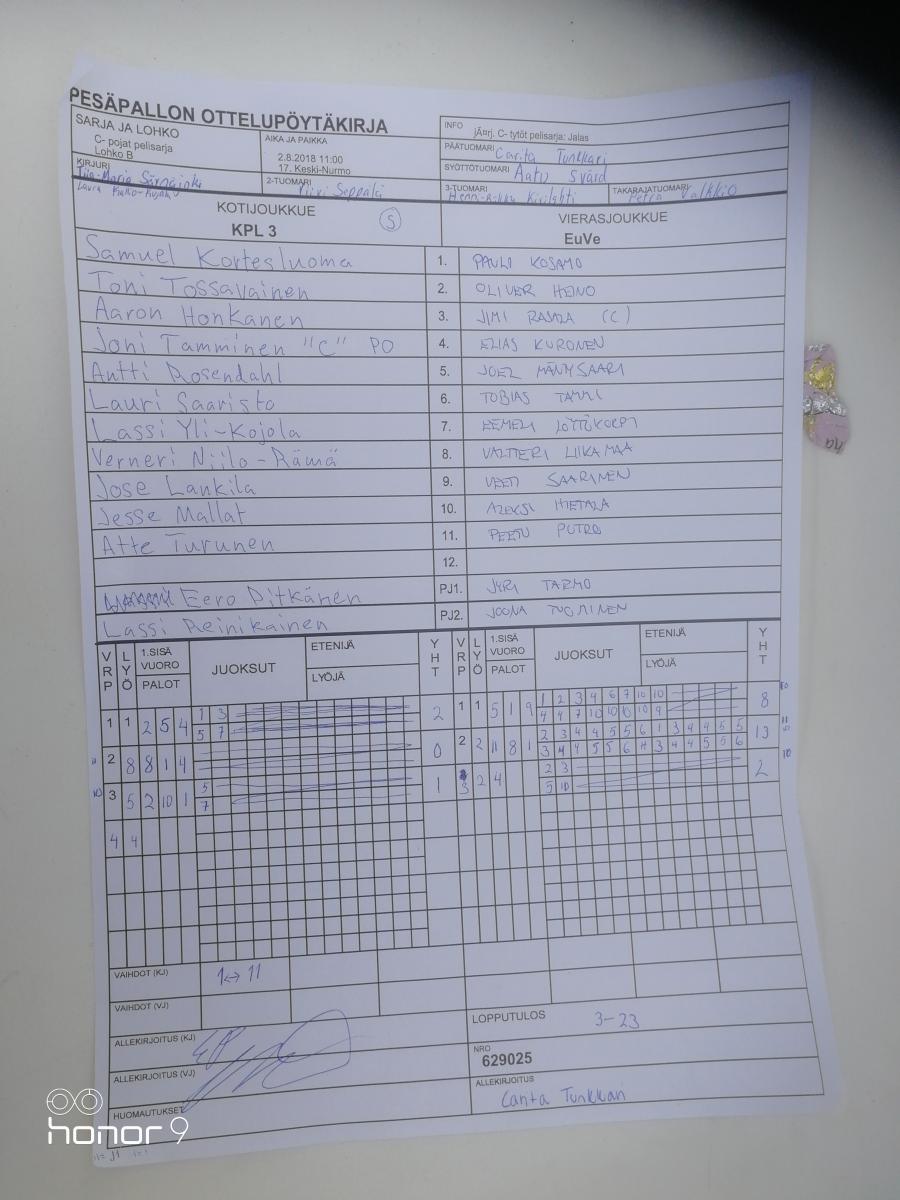 PESÄPALLON OTTELUPÖYTÄKIRJA
SARJA JA LOHKO
C- pojat pelisarja
Lohko B
AIKA JA PAIKKA
2.8.2018 11:00
17. Keski-Nurmo
INFO
jÃ¤rj. C- tytöt pelisarja: Jalas
PÄÄTUOMARI Carita Tunkkari
SYÖTTÖTUOMARI Aatu Svärd
KIRJURI
Laura
2-TUOMARI Seppälä
3-TUOMARI
TAKARAJATUOMARI Petra Valkkio
KOTIJOUKKUE
KPL 3
S
VIERASJOUKKUE
EuVe
Samuel Kortesluoma 1. PAULI KOSAMO
Toni Tossavainen 2. OLIVER HEINO
Aaron Honkanen 3. JIMI (C)
Joni Tamminen "C" PO 4. ELIAS KURONEN
Antti Rosendahl 5. JOEL MÄNTYSAARI
Lauri Saaristo 6. TOBIAS TAMMI
Lassi Yli-Kojola 7. EEMELI LÖYTÖKORPI
Verneri Niilo-Rämä 8. VALTTERI LIIKAMAA
Jose Lankila 9. VEETI SAARINEN
Jesse Mallat 10. ALEKSI HIETALA
Atte Turunen 11. PEETU PUTRO
12.
Eero Pitkänen PJ1. JYRI TARMO
Lassi Reinikainen PJ2. JOONA TUOMINEN
VRP LYÖ 1.SISÄ VUORO PALOT JUOKSUT ETENIJÄ LYÖJÄ YHT VRP LYÖ 1.SISÄ VUORO PALOT JUOKSUT ETENIJÄ LYÖJÄ YHT
1 1 2 5 4 1 3 2 1 1 5 1 9 1 2 3 4 6 7 10 10 8
5 7 4 4 7 10 10 10 10 9
2 8 8 1 4 0 2 2 11 8 1 2 3 4 4 5 5 6 1 3 4 4 5 5 13
3 4 4 5 5 6 11 3 4 4 5 5 6
3 5 2 10 1 5 1 3 2 4 2 3 2
7 5 10
4 4
VAIHDOT (KJ) 1↔11
VAIHDOT (VJ)
ALLEKIRJOITUS (KJ)
LOPPUTULOS 3-23
ALLEKIRJOITUS (VJ)
NRO
629025
HUOMAUTUKSET
ALLEKIRJOITUS
Carita Tunkkari
honor 9